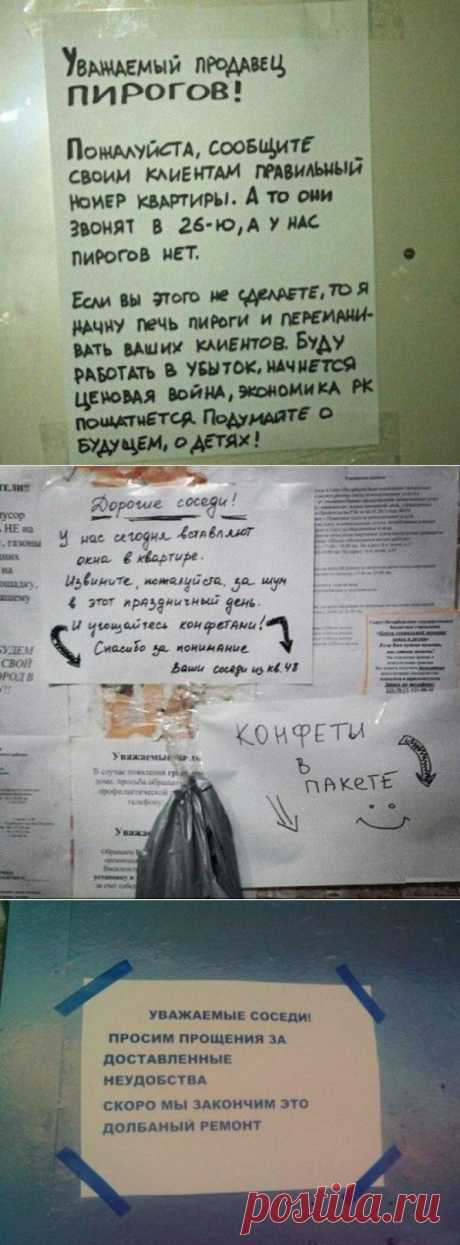 Уважаемый продавец
пирогов!
Пожалуйста, сообщите
своим клиентам правильный
номер квартиры. А то они
звонят в 26-ю, а у нас
пирогов нет.
Если вы этого не сделаете, то я
начну печь пироги и перемани-
вать ваших клиентов. Буду
работать в убыток, начнется
ценовая война, экономика РК
пошатнется. Подумайте о
будущем, о детях!
Дорогие соседи!
У нас сегодня вставляют
окна в квартире.
Извините, пожалуйста, за шум
в этот праздничный день.
И угощайтесь конфетами!
Спасибо за понимание
Ваши соседи из кв. 48
ТЕЛИ!!
усор
НЕ на
газоны
на
БУДЕМ
СВОЙ
ОРОД В
Уважаемы
В случае появления
доме, просьба
профилактической
телефону
Уважа
Обращаем В
установку
за счет
КОНФЕТЫ
В
ПАКЕТЕ
УВАЖАЕМЫЕ СОСЕДИ!
ПРОСИМ ПРОЩЕНИЯ ЗА
ДОСТАВЛЕННЫЕ
НЕУДОБСТВА
СКОРО МЫ ЗАКОНЧИМ ЭТО
ДОЛБАНЫЙ РЕМОНТ
postila.ru